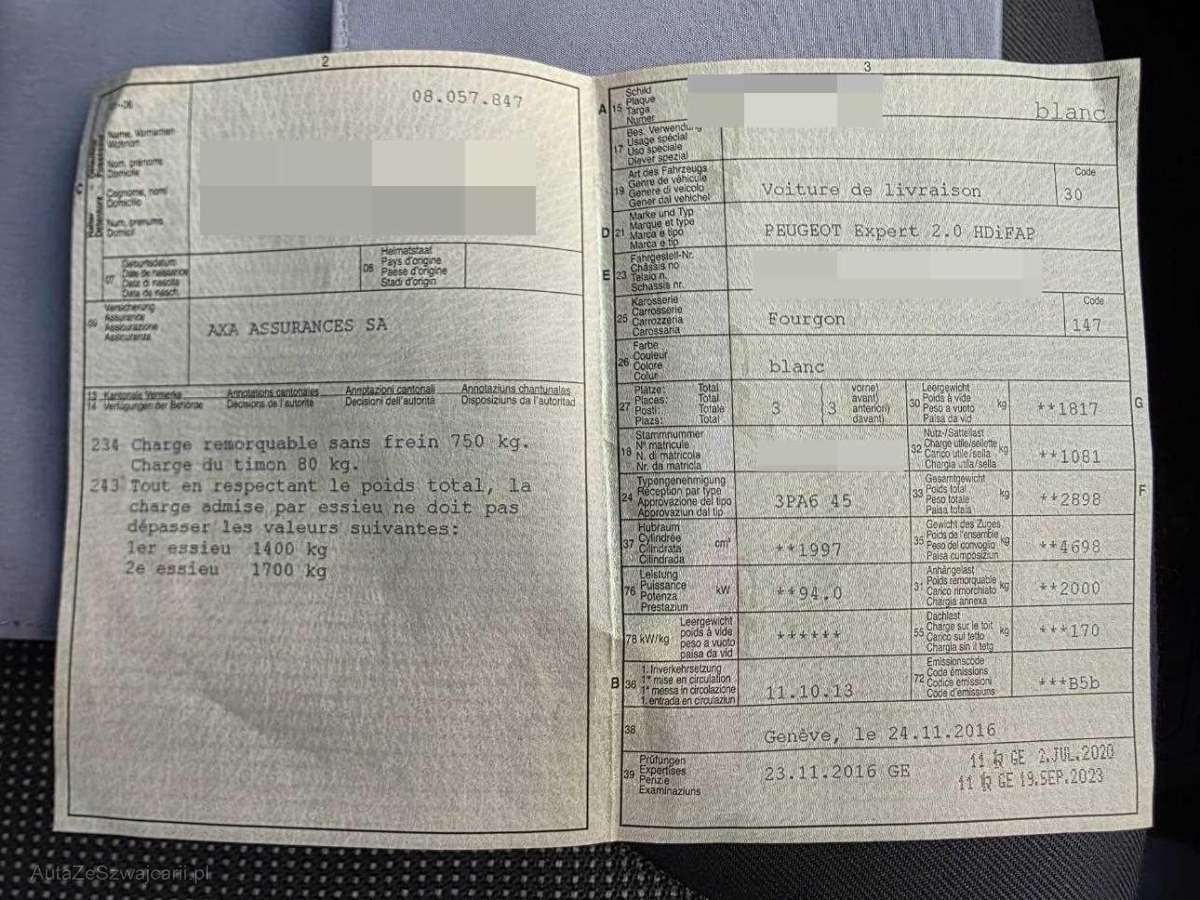 2
08.057.847
Name, Vornamen
Wohnort
Nom, prénoms
Domicile
Cognome, nomi
Domicilio
Num, prenums
Domicil
C
07
Geburtsdatum
Date de naissance
Data di nascita
Data da nasch.
08
Heimatstaat
Pays d'origine
Paese d'origine
Stadi d'origin
09
Versicherung
Assurance
Assicurazione
Assicuranza
AXA ASSURANCES SA
13 Kantonale Vermerke Annotations cantonales Annotazioni cantonali Annotaziuns chantunalas
14 Verfügungen der Behörde Décisions de l'autorité Decisioni dell'autorità Disposiziuns da l'autoritad
234 Charge remorquable sans frein 750 kg.
Charge du timon 80 kg.
243 Tout en respectant le poids total, la
charge admise par essieu ne doit pas
dépasser les valeurs suivantes:
1er essieu 1400 kg
2e essieu 1700 kg
3
A 15
Schild
Plaque
Targa
Numer
blanc
17
Bes. Verwendung
Usage spécial
Uso speciale
Diever spezial
19
Art des Fahrzeugs
Genre de véhicule
Genere di veicolo
Gener dal vehichel
Voiture de livraison
Code
30
D 21
Marke und Typ
Marque et type
Marca e tipo
Marca e tip
PEUGEOT Expert 2.0 HDiFAP
E 23
Fahrgestell-Nr.
Châssis no
Telaio n.
Schassis nr.
25
Karosserie
Carrosserie
Carrozzeria
Carossaria
Fourgon
Code
147
26
Farbe
Couleur
Colore
Colur
blanc
27
Plätze: Total
Places: Total
Posti: Totale
Plazs: Total
3
(3
vorne)
avant)
anteriori)
davant)
30
Leergewicht
Poids à vide
Peso a vuoto
Paisa da vid
kg
**1817
G
18
Stammnummer
Nº matricule
N. di matricola
Nr. da matricla
32
Nutz-/Sattellast
Charge utile/sellette
Carico utile/sella
Chargia utila/sella
kg
**1081
24
Typengenehmigung
Réception par type
Approvazione del tipo
Approvaziun dal tip
3PA6 45
33
Gesamtgewicht
Poids total
Peso totale
Paisa totala
kg
**2898
F
37
Hubraum
Cylindrée
Cilindrata
Cilindrada
cm³
**1997
35
Gewicht des Zuges
Poids de l'ensemble
Peso del convoglio
Paisa cumposiziun
kg
**4698
76
Leistung
Puissance
Potenza
Prestaziun
kW
**94.0
31
Anhängelast
Poids remorquable
Carico rimorchiato
Chargia annexa
kg
**2000
78 kW/kg
Leergewicht
poids à vide
peso a vuoto
paisa da vid
******
55
Dachlast
Charge sur le toit
Carico sul tetto
Chargia sin il tetg
kg
***170
B 36
1. Inverkehrsetzung
1re mise en circulation
1a messa in circolazione
1. entrada en circulaziun
11.10.13
72
Emissionscode
Code émissions
Codice emissioni
Code d'emissiuns
***B5b
38
Genève, le 24.11.2016
39
Prüfungen
Expertises
Perizie
Examinaziuns
23.11.2016 GE
11 GE 2.JUL.2020
11 GE 19.SEP.2023
AutaZeSzwajcarii.pl